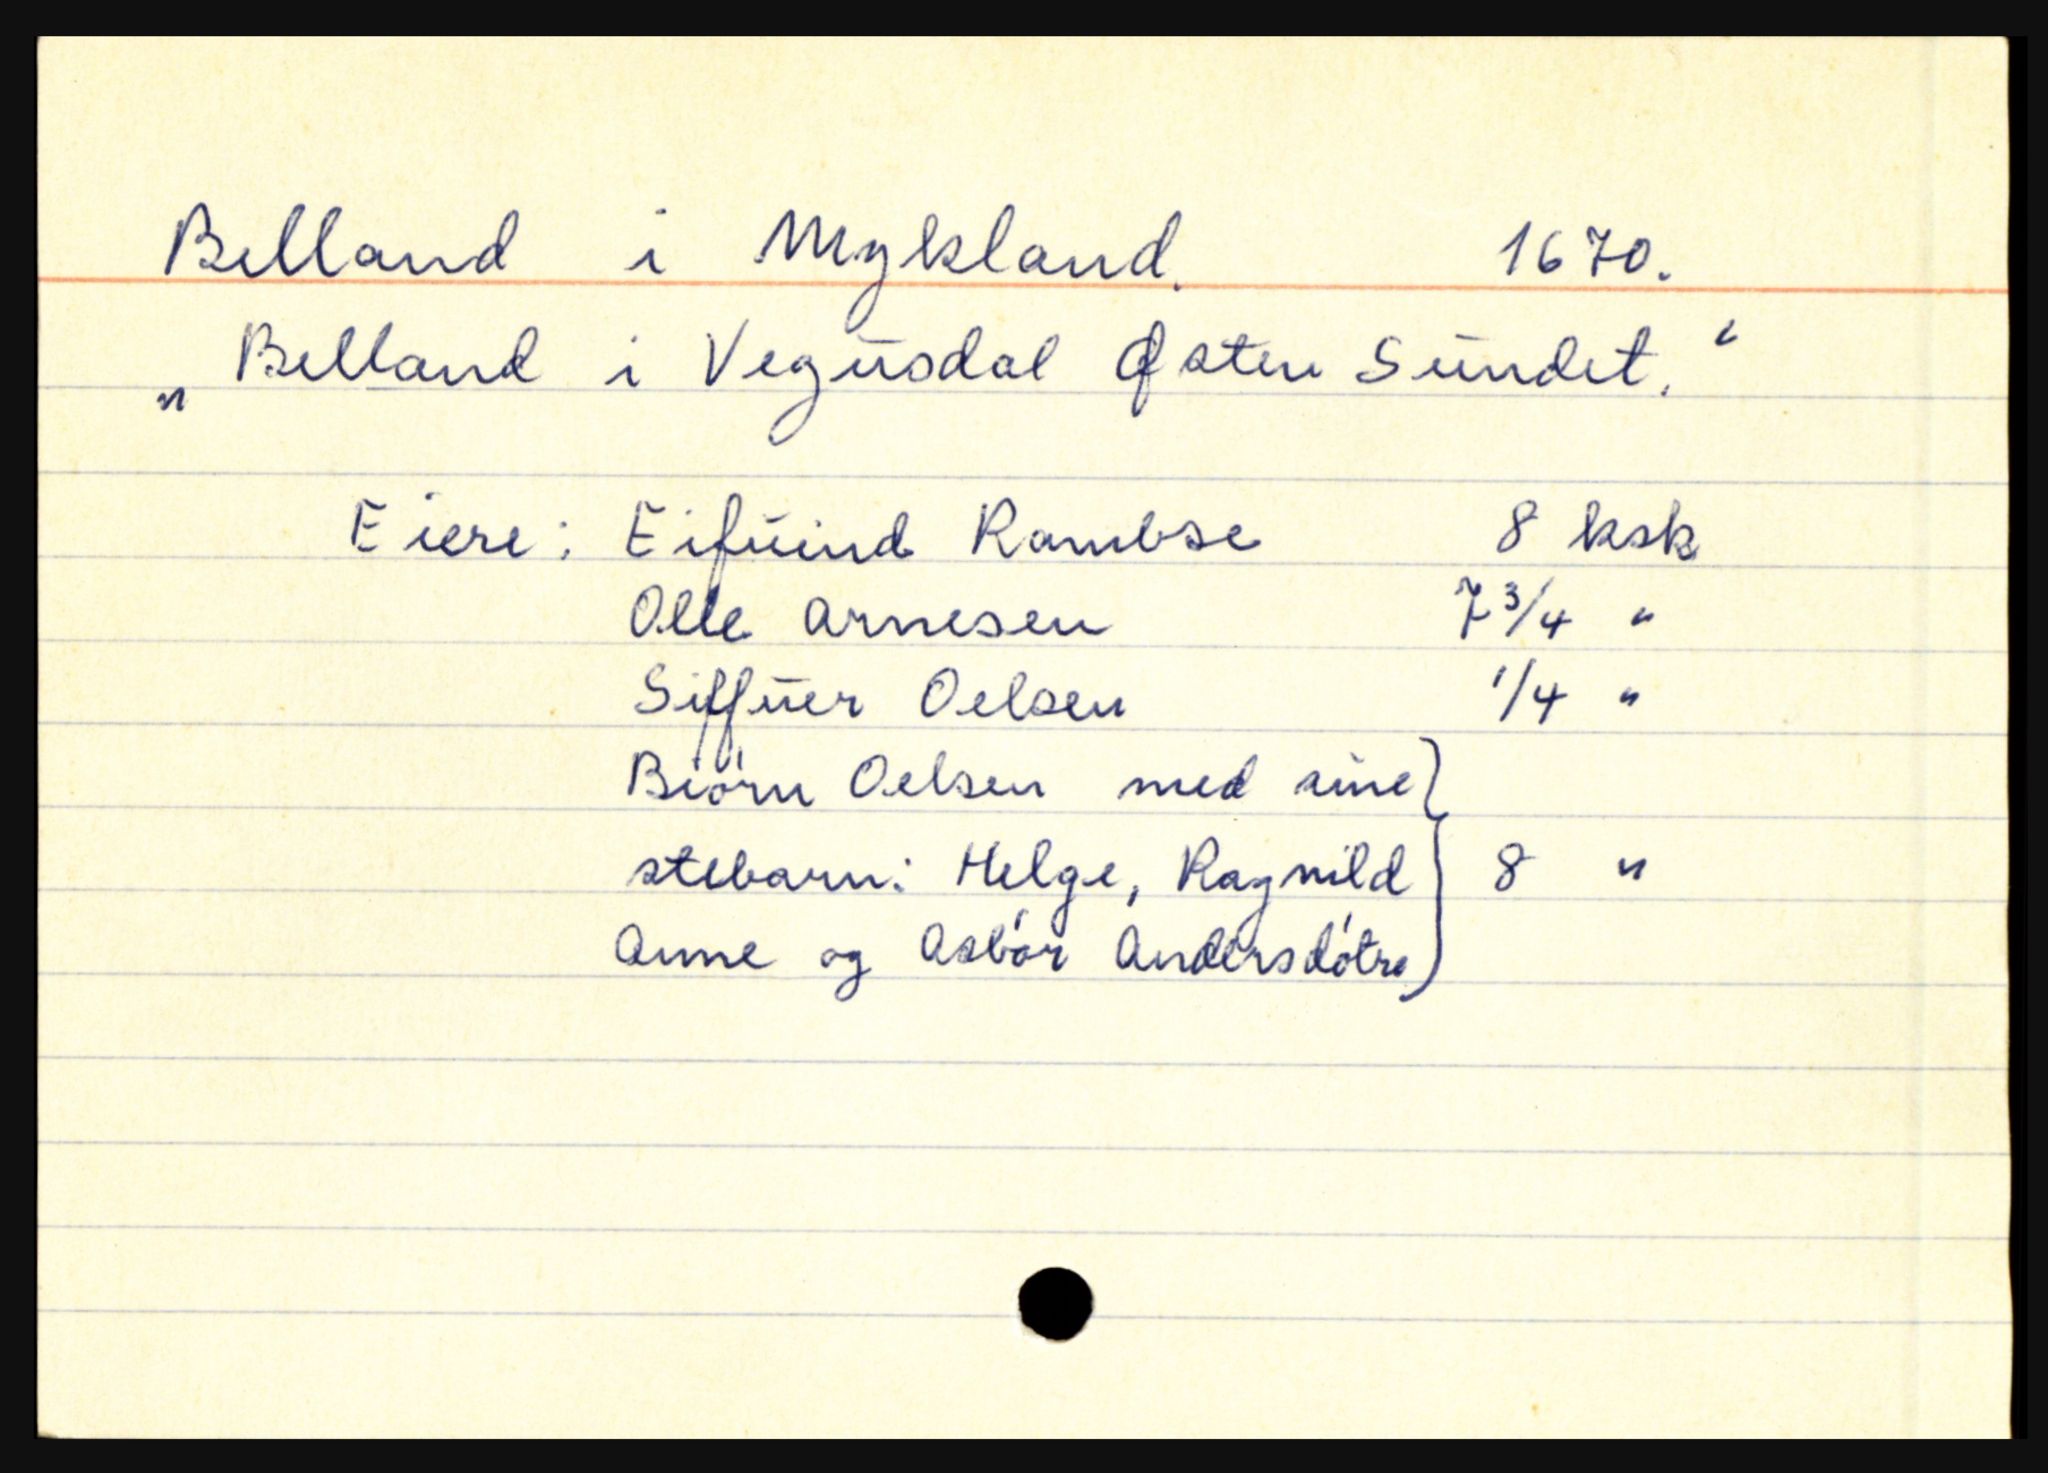 Belland i Mykland. 1670.
„Belland i Vegusdal Østen Sundet.“
Eiere: Eifuind Rambse 8 ksk
Olle Arnesen 7 3/4 "
Siffuer Oelsen 1/4 "
Biórn Oelsen med sine
stebarn: Helge, Ragnild 8 "
Anne og Asbór Andersdótre